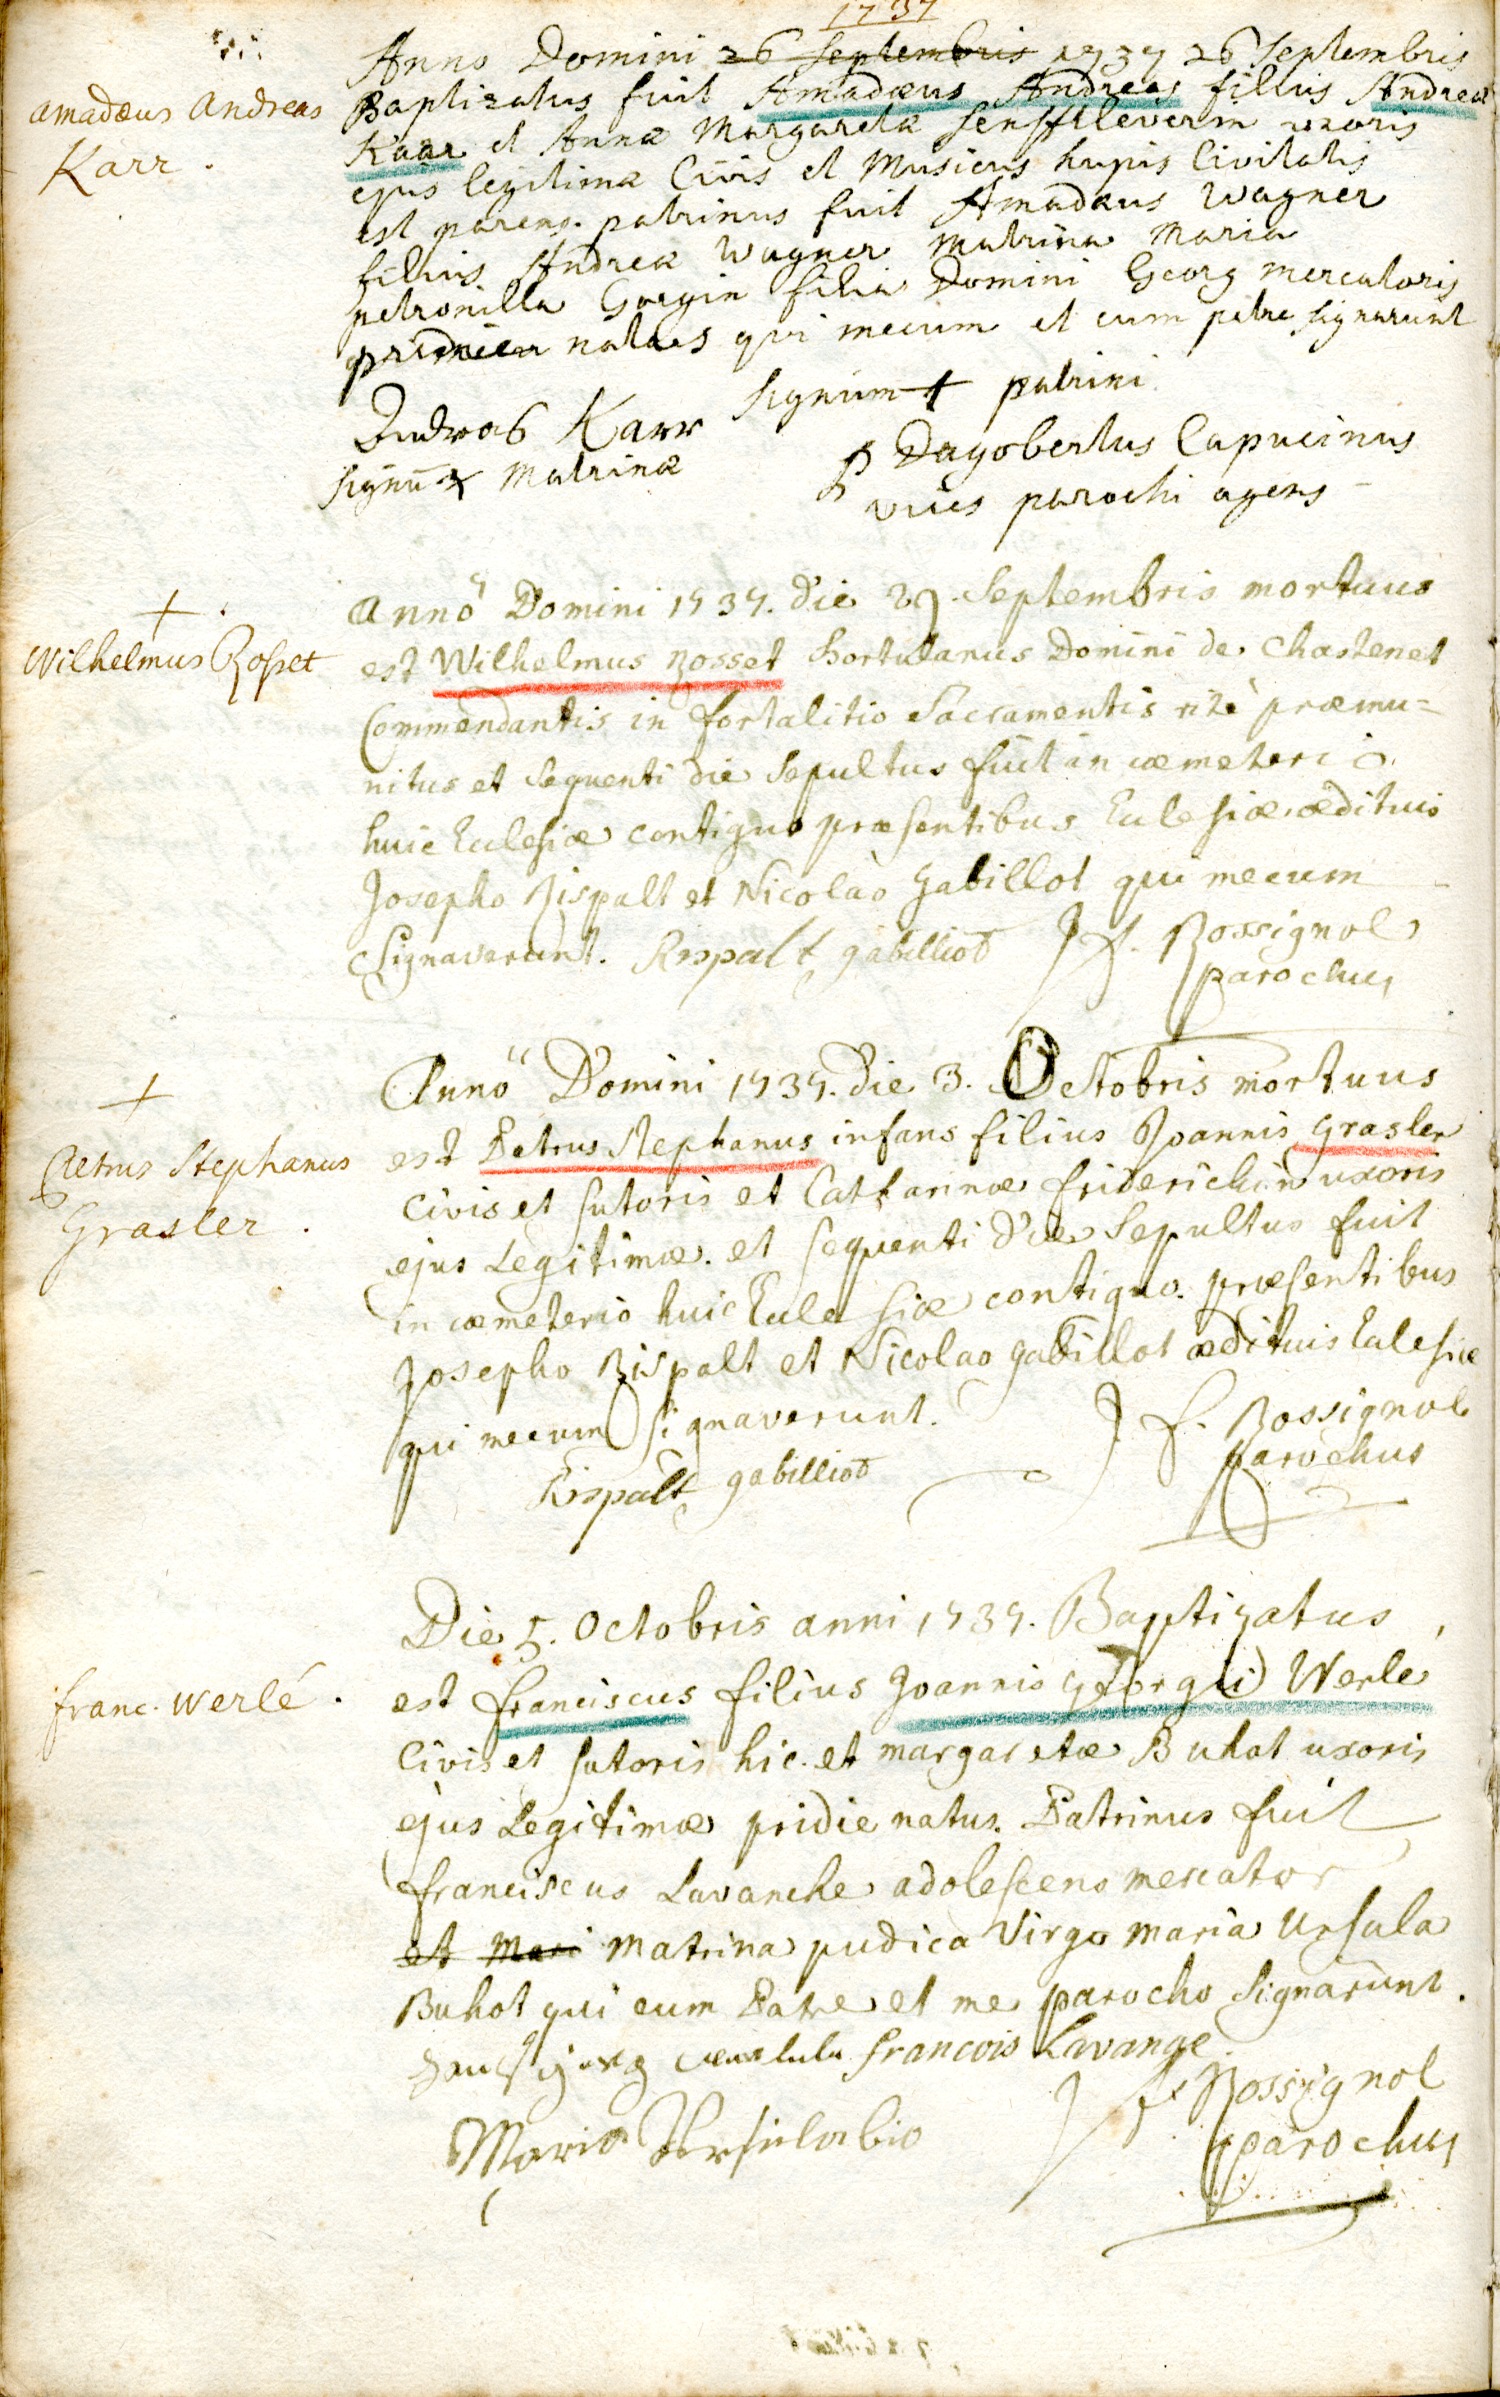 1737
Anno Domini 26 Septembris 1737 26 Septembris
amadæus andreas
Karr.
Baptizatus fuit Amadæus Andreas filius Andreæ
Kaar et Annæ Margaretæ Senfftleverin uxoris
ejus legitimæ Civis et Musicus hujus Civitatis
est parens. patrinus fuit Amadæus Wagner
filius Andreæ Wagner Matrina Maria
petronilla Gorgin filia Domini Georg mercatoris
pridie natus qui mecum et cum patre signarunt
Signum + patrini
Andreas Karr
P Dagobertus Capucinus
Signū + Matrinæ
vices parochi agens
Anno Domini 1737. die 29. Septembris mortuus
+
Wilhelmus Rosset
est Wilhelmus Rosset hortulanus Domini de Chastenet
Commendantis in fortalitio Sacramentis ritè præmu=
nitus et sequenti die Sepultus fuit in cœmeterio
huic Eclesiæ contiguo præsentibus Eclesiæ ædituis
Josepho Rispalt et Nicolao Gabillot qui mecum
Signaverunt. Rispalt gabilliot J f. Rossignol
parochus
Anno Domini 1737. die 3. Octobris mortuus
+
Petrus Stephanus
Grasler.
est Petrus Stephanus infans filius Joannis Grasler
Civis et sutoris et Catharinæ friderichin uxoris
ejus Legitimæ. et sequenti die Sepultus fuit
in cœmeterio huic Eclesiæ contiguo. præsentibus
Josepho Rispalt et Nicolao Gabillot ædituis Eclesiæ
qui mecum signaverunt.
J f. Rossignol
parochus
Rispalt gabilliot
Die 5. Octobris anni 1737. Baptizatus
franc. Werlé.
est franciscus filius Joannis Georgii Werle
Civis et sutoris hic. et margaretæ Buhot uxoris
ejus Legitimæ pridie natus. Patrinus fuit
franciscus Lavanche adolescens mercator
et Mari Matrina pudica Virgo maria Ursula
Buhot qui cum Patre et me parocho signarunt.
francois Lavange
J f Rossignol
parochus
Maria Ursula bio